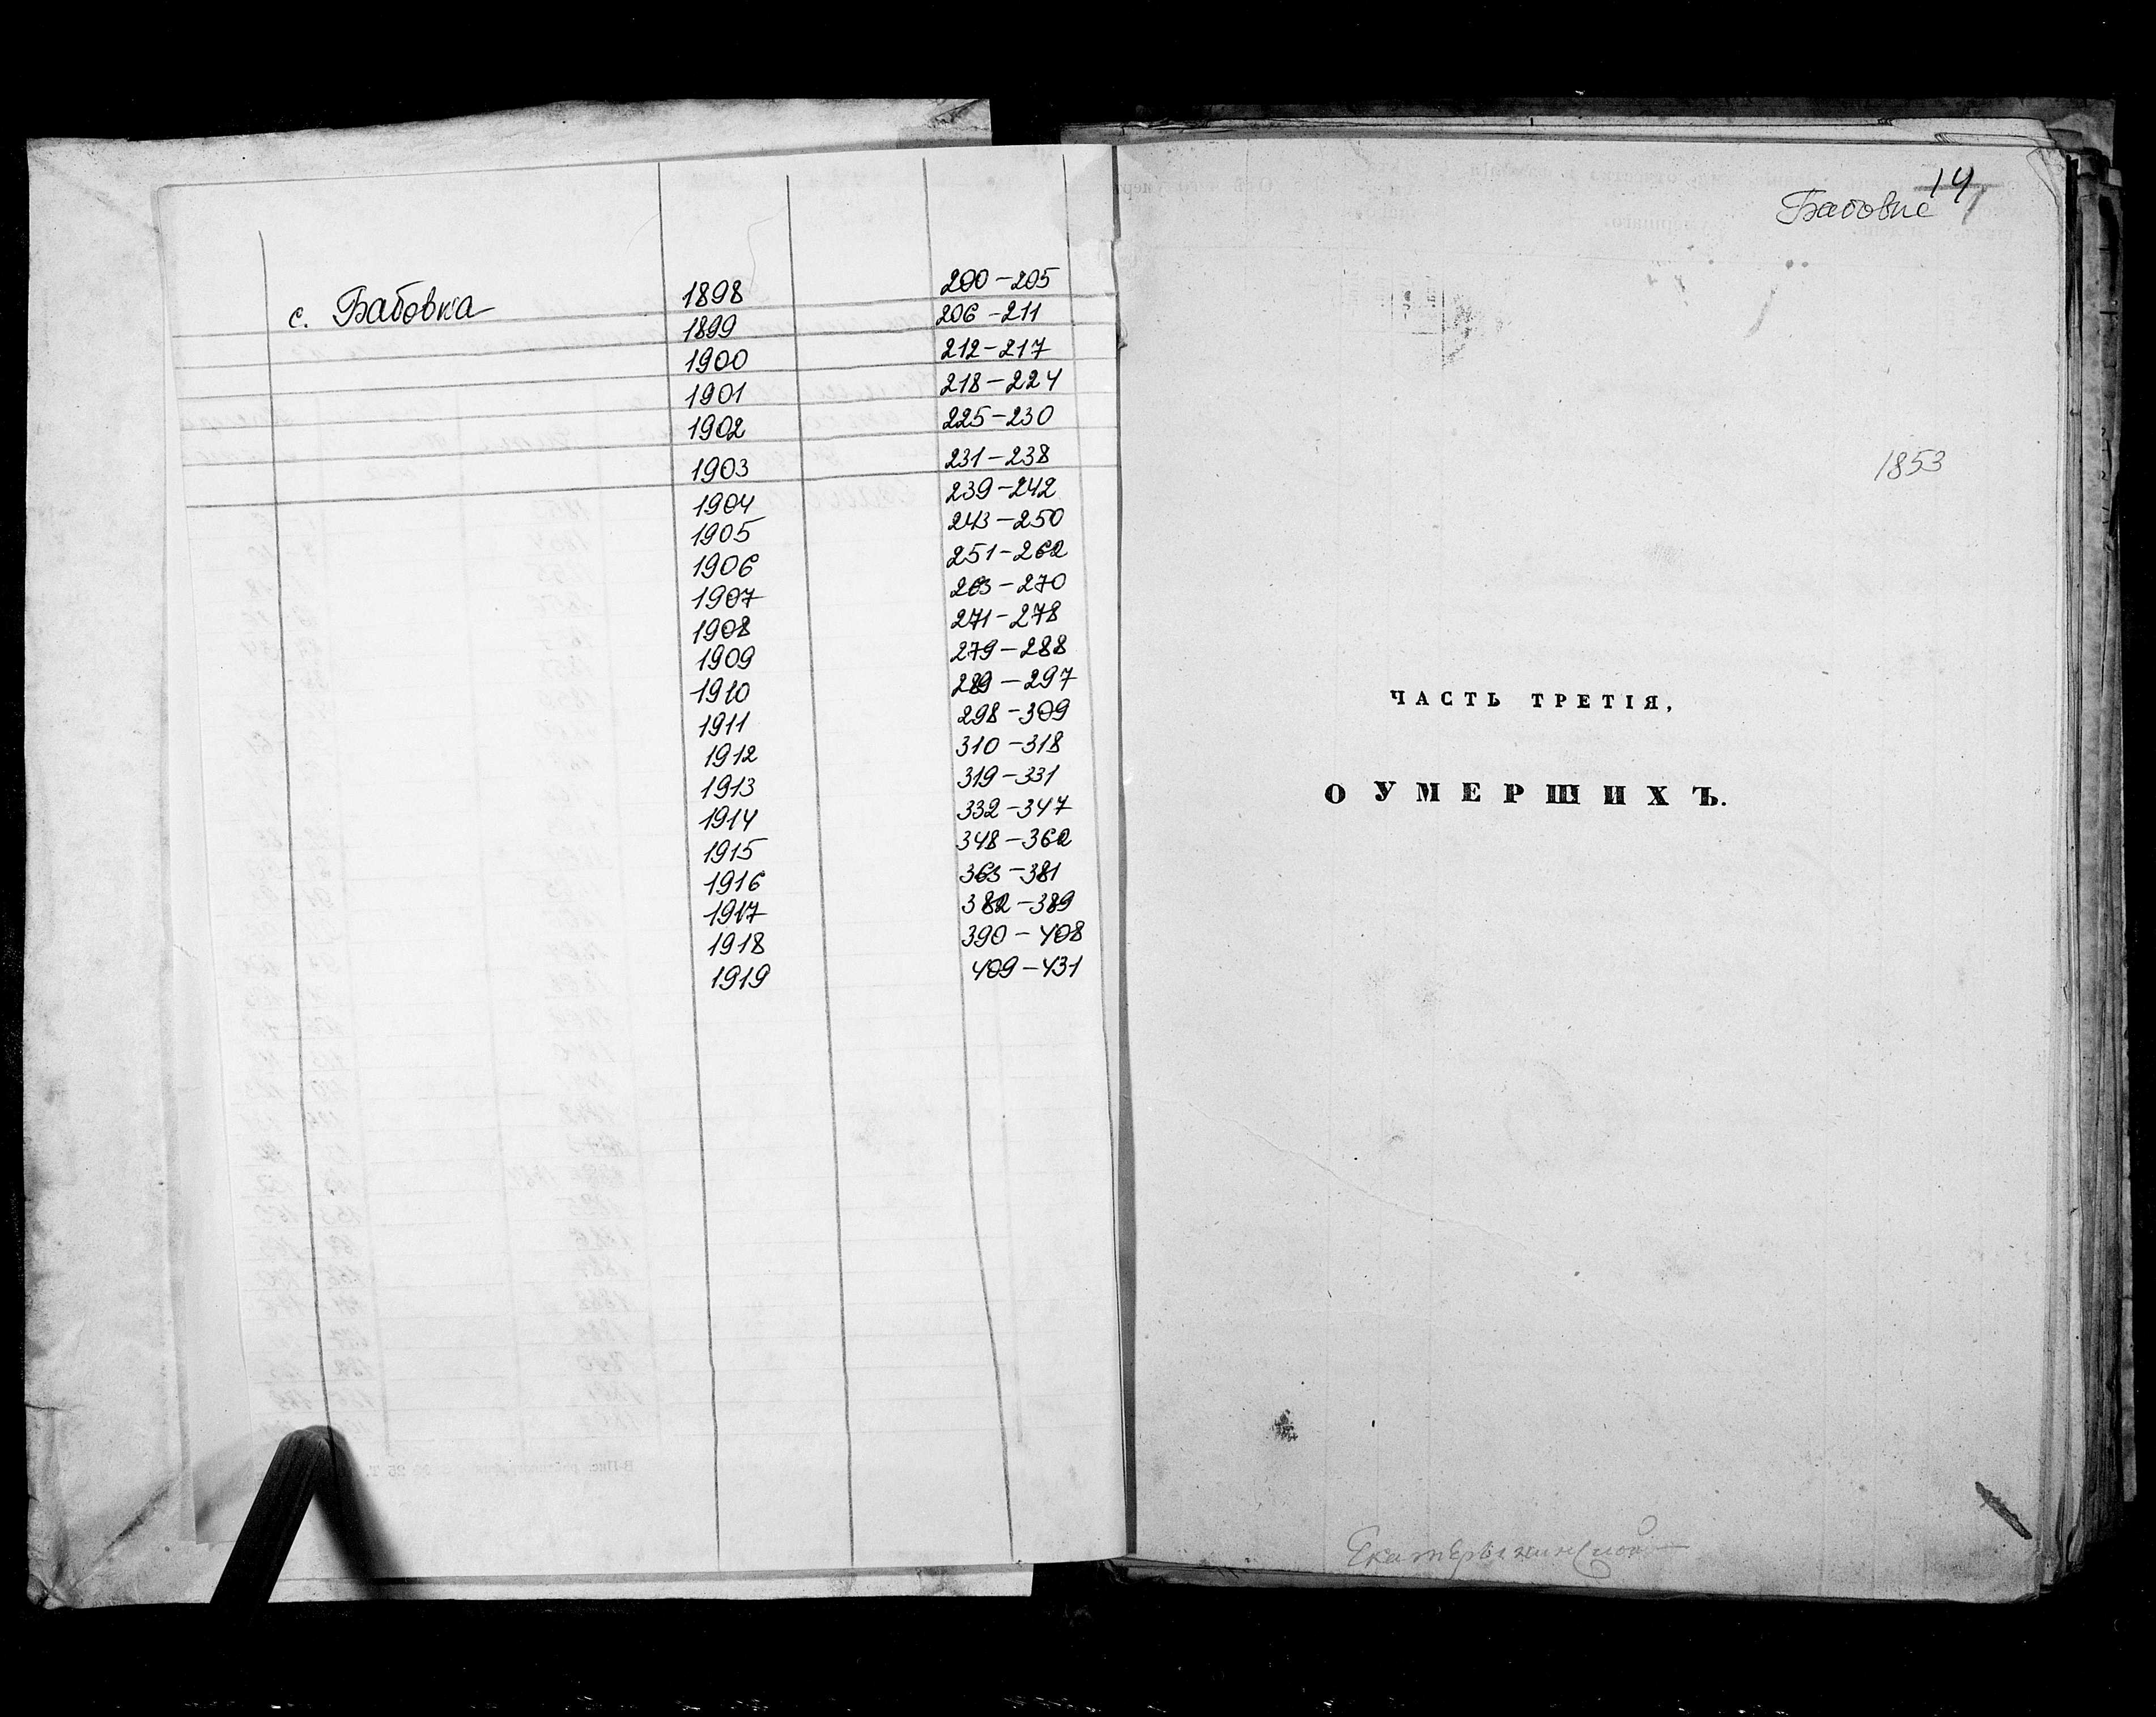 с. Бабовка 1898 200-205
1899 206-211
1900 212-217
1901 218-224
1902 225-230
1903 231-238
1904 239-242
1905 243-250
1906 251-262
1907 263-270
1908 271-278
1909 279-288
1910 289-297
1911 298-309
1912 310-318
1913 319-331
1914 332-347
1915 348-362
1916 363-381
1917 382-389
1918 390-408
1919 409-431
14
1853
ЧАСТЬ ТРЕТІЯ,
О УМЕРШИХЪ.